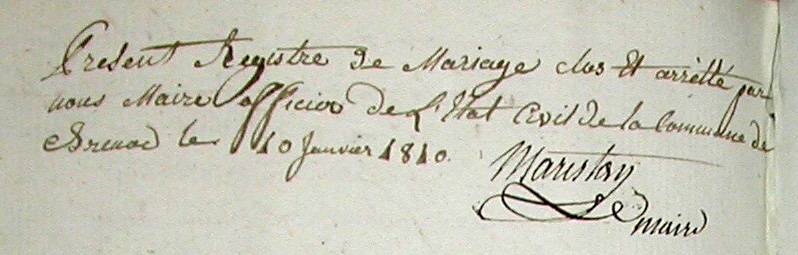 Présent Registre de Mariage clos Et arretté par
nous Maire officier de L'Etat Civil de la Commune de
Brenac le 10 Janvier 1810.
Maristay
maire